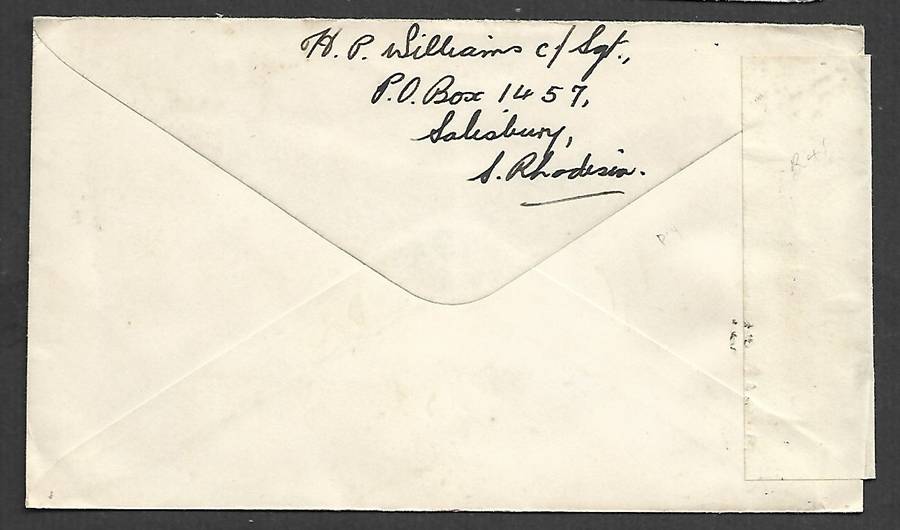 H. P. Williams c/Sgt.,
P.O. Box 1457,
Salisbury,
S. Rhodesia.